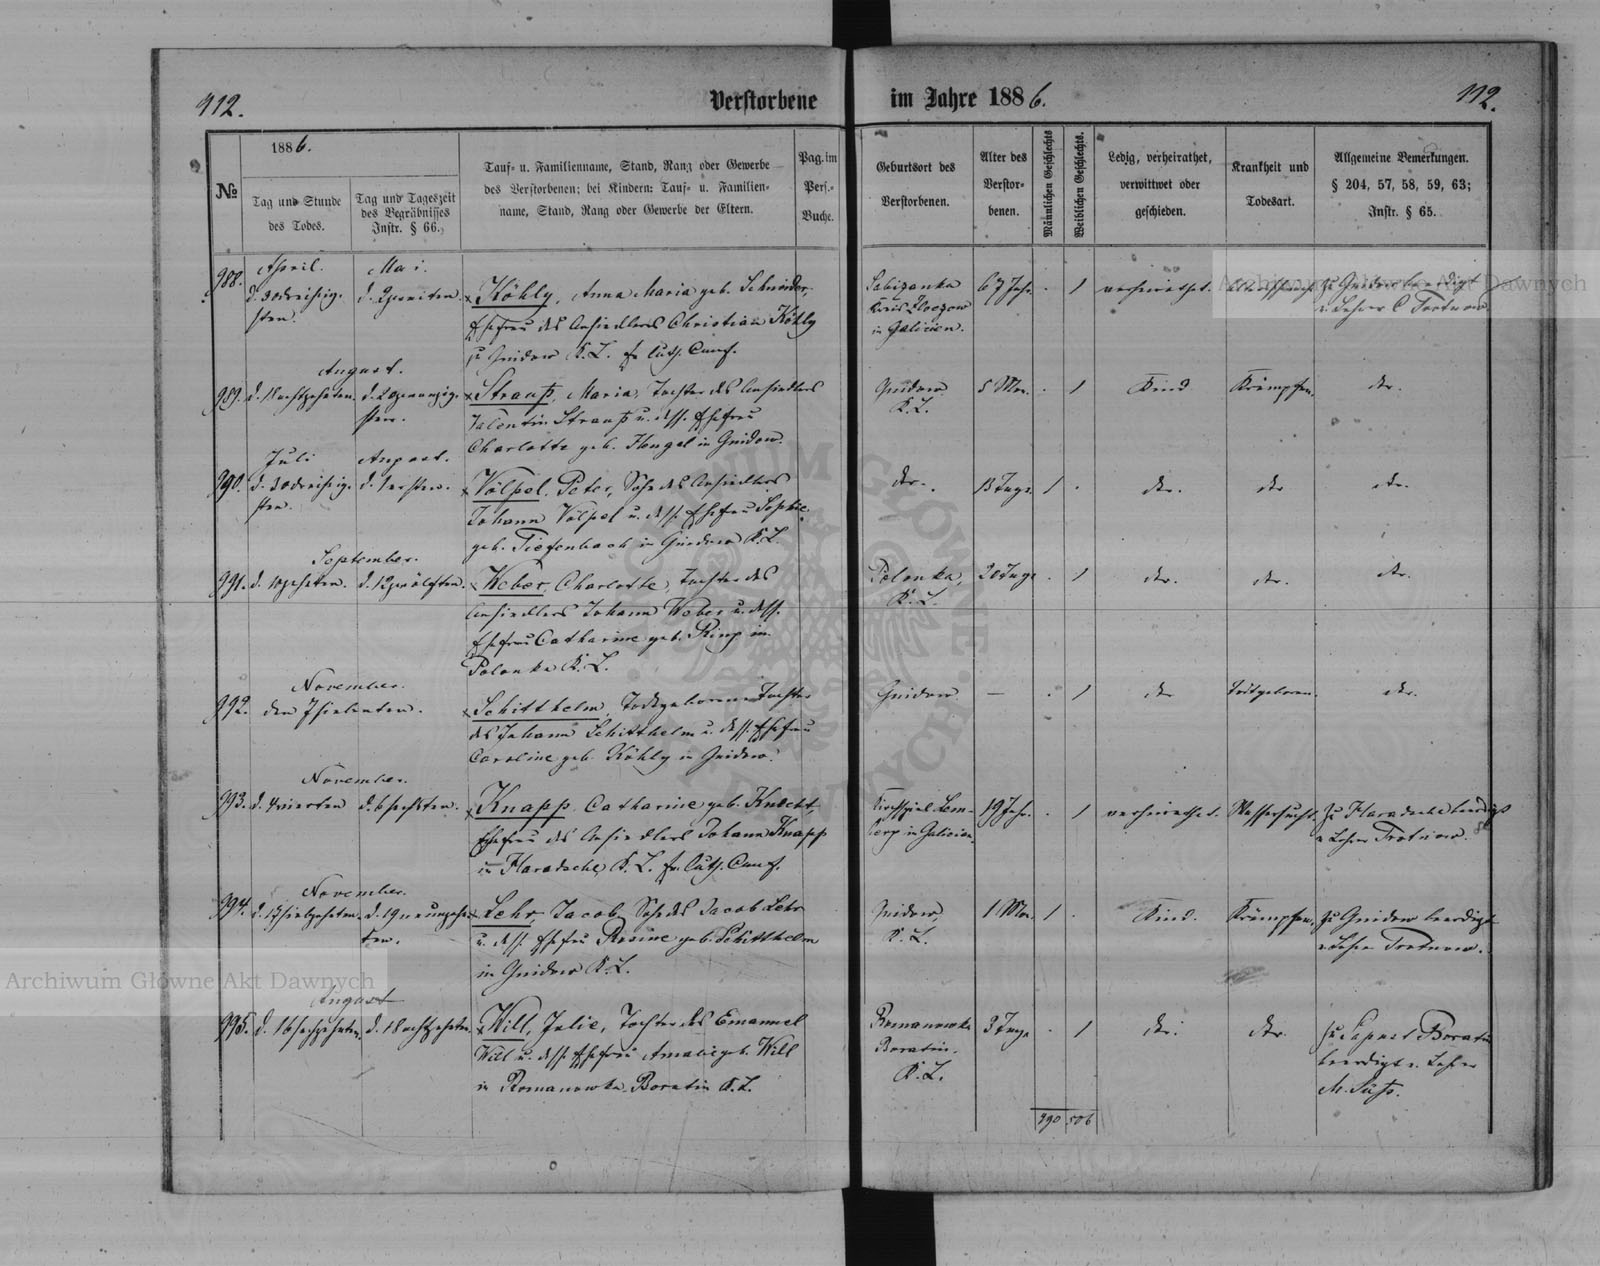 112.
Verstorbene
im Jahre 1886.
112.
№
1886.
Tag und Stunde
des Todes.
Tag und Tageszeit
des Begräbnisses
Instr. § 66.
Tauf= u. Familienname, Stand, Rang oder Gewerbe
des Verstorbenen; bei Kindern: Tauf= u. Familien-
name, Stand, Rang oder Gewerbe der Eltern.
Pag. im
Pers.-
Buche.
Geburtsort des
Verstorbenen.
Alter des
Verstor-
benen.
Männlichen Geschlechts
Weiblichen Geschlechts.
Ledig, verheirathet,
verwittwet oder
geschieden.
Krankheit und
Todesart.
Allgemeine Bemerkungen.
§ 204, 57, 58, 59, 63;
Instr. § 65.
988.
April.
d. 30dreißig-
sten.
Mai.
d. 2zweiten.
x Köhly, Anna Maria geb. Schneider,
Ehefrau des Ansiedlers Christian Köhly
zu Gnidow K. L. ev. luth. Conf.
Kreis Zloczow
in Galicien.
67 Jahr.
. 1
verheirathet.
zu Gnidow beerdigt
v. Lehrer C Trotnow
989.
August.
d. 18achtzehnten.
d. 20zwanzig-
sten.
x Strauß, Maria, Tochter des Ansiedlers
Valentin Strauß u. dess. Ehefrau
Charlotte geb. in Gnidow.
Gnidow
K. L.
5 Mon.
. 1
Kind
Krämpfen
dto.
990.
Juli
d. 30dreißig-
sten.
August.
d. 1ersten.
x Völpel, Peter, Sohn des Ansiedlers
Johann Völpel u. dess. Ehefrau Sophie
geb. Tiefenbach in Gnidow K. L.
dto.
13 Tage.
1 .
dto.
dto
dto.
991.
September.
d. 10zehnten.
d. 12zwölften.
x Weber, Charlotte, Tochter des
Ansiedlers Johann Weber u. dess.
Ehefrau Catharine geb. Ring in
Polonka K. L.
Polonka,
K. L.
20 Tage
. 1
dto.
dto.
dto.
992.
November.
den 7siebenten.
x Schitthelm, Todtgeborene Tochter
des Johann Schitthelm u. dess. Ehefrau
Caroline geb. Köhly in Gnidow.
Gnidow
—
. 1
dto
Todtgeboren.
dto.
993.
November.
d. 4vierten
d. 6sechsten.
x Knapp, Catharine geb. Knecht,
Ehefrau des Ansiedlers Johann Knapp
in K. L. ev. luth. Conf.
Kirchspiel Lem-
berg in Galicien.
19 Jahr.
. 1
verheirathet.
Wassersucht.
Zu beerdigt
v. Lehrer Trotnow.
994.
November.
d. 17siebzehnten.
d. 19neunzehn-
ten.
x Lehr, Jacob, Sohn des Jacob Lehr
u. dess. Ehefrau Rosine geb. Schitthelm
in Gnidow K. L.
Gnidow
K. L.
1 Mon.
1 .
Kind.
Krämpfen.
zu Gnidow beerdigt
v. Lehrer Trotnow.
995.
August
d. 16sechzehnten.
d. 18achtzehnten.
x Will, Julie, Tochter des Emanuel
Will u. dess. Ehefrau Amalie geb. Will
in Romanowka-Boratin K. L.
Romanowka
Boratin.
K. L.
3 Tage
. 1
dto.
dto.
zu Boratin
beerdigt v. Lehrer
490 506
Archiwum Główne Akt Dawnych
Archiwum Główne Akt Dawnych